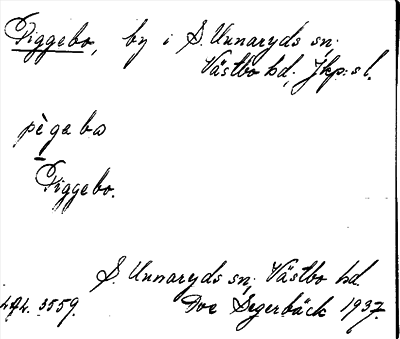 Piggebo, by i S. Unnaryds sn;
Västbo hd, Jkp:s l.
pègabo
Piggebo.
S. Unnaryds sn; Västbo hd.
Segerbäck 1937.
3559.